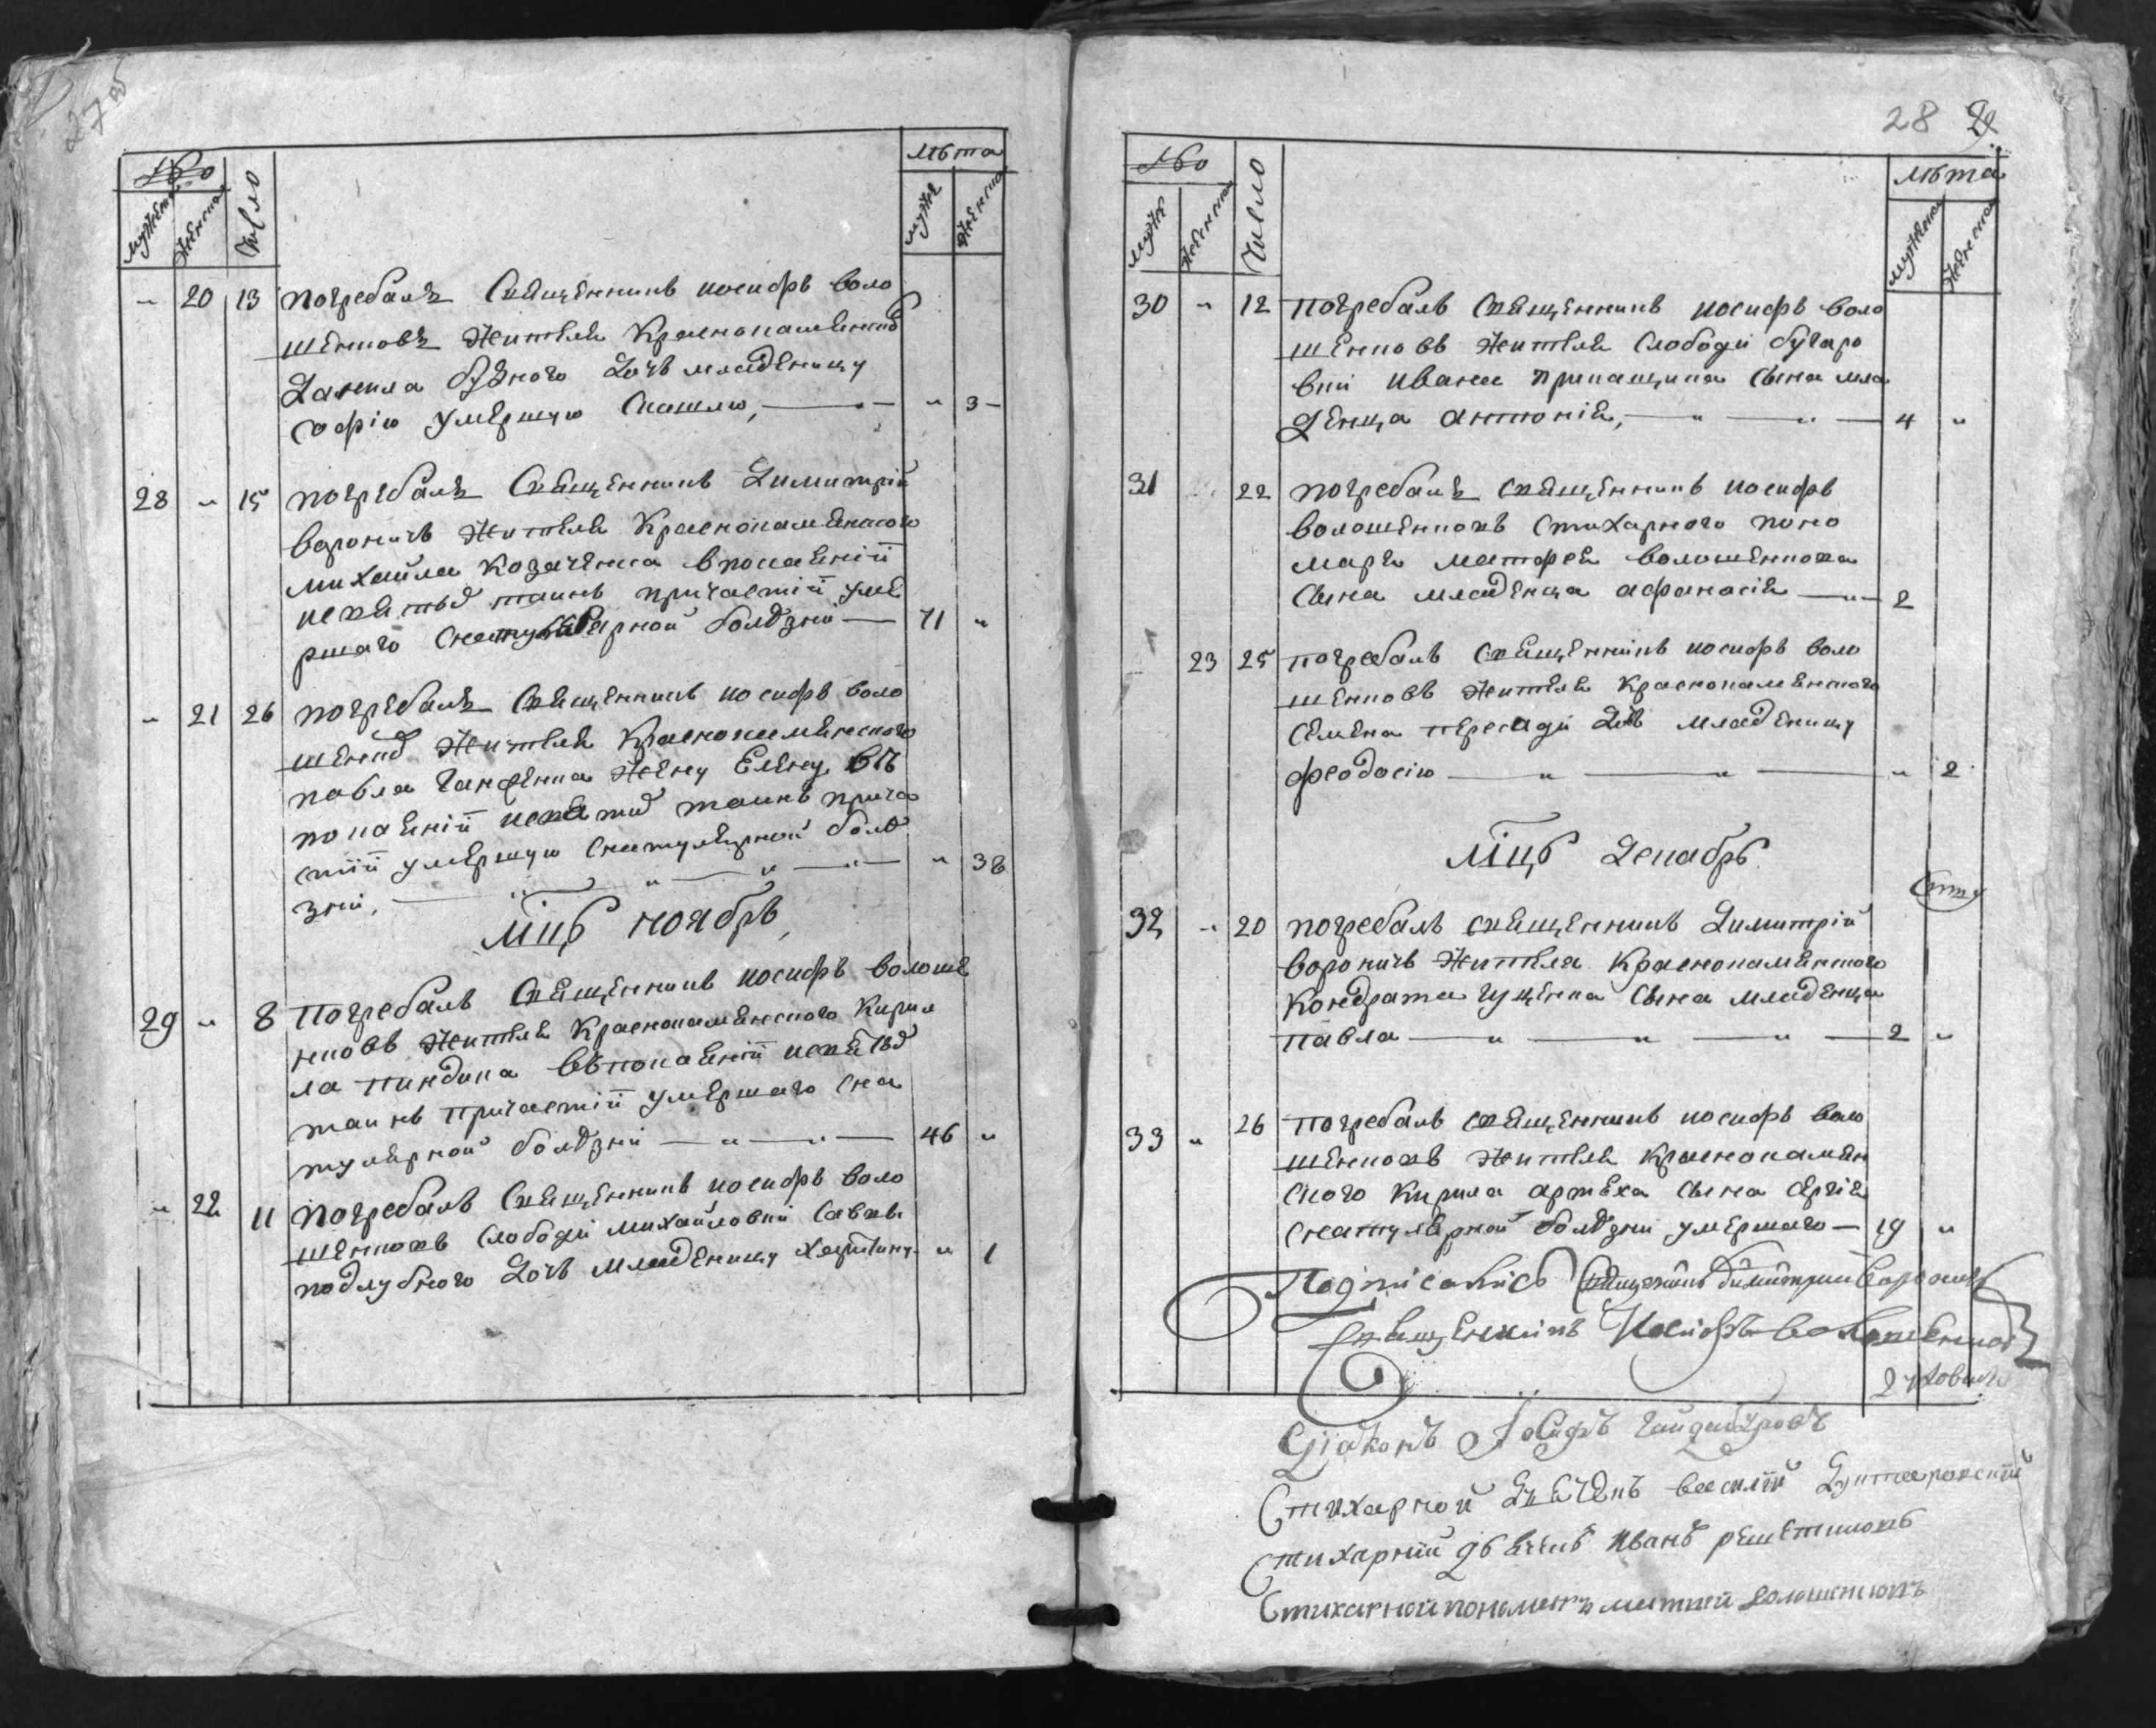 27 об
№о
Число
лѣта
мужеска
женска
мужес
женска
„ 20 13 погребалъ Священникъ иосифъ воло
шенковъ жителя Краснокаменского
Данила бузного дочъ младеницу
софію умершую скашлю, „ 3
28 „ 15 погребалъ Священникъ Димитрій
вороничъ жителя Краснокаменского
михайла козаченка впокаянїи
исвятыхъ таинъ причастїи уме
ршаго снатуралной болѣзни 71 „
„ 21 26 погребалъ Священникъ иосифъ воло
шенко жителя Краснокаменского
павла жену Елену въ
покаянїи исвятыхъ таинъ прича
стїи умершую снатуралной болѣ
зни, „ 38
Мцъ ноябръ,
29 „ 8 погребалъ Священникъ иосифъ волоше
нковъ жителя Краснокаменского Кирил
ла пиндика въпокаянїи исвятыхъ
таинъ причастїи умершаго сна
туралной болѣзни 46 „
„ 22 11 погребалъ Священникъ иосифъ воло
шенковъ слободи михайловки Савви
подлубного дочъ младеницу Христину „ 1
28
№о
Число
лѣта
мужес
женска
мужеска
женска
30 „ 12 погребалъ Священникъ иосифъ воло
шенковъ жителя слободи бугаро
вки ивана сина мла
денца антонія, 4 „
31 22 погребалъ священникъ иосифъ
волошенковъ стихарного поно
маря матфея волошенкова
сина младенца афанасія 2
23 25 погребалъ священникъ иосифъ воло
шенковъ жителя краснокаменского
семена пересади дочъ младеницу
феодосію „ 2
Мцъ Декабръ
32 „ 20 погребалъ священникъ Димитрій
вороничъ жителя краснокаменского
кондрата гущенка сина младенца
павла 2 „
33 „ 26 погребалъ священникъ иосифъ воло
шенковъ жителя краснокамен
ского кирила артюха сина сергія
снатуралной болѣзни умершаго 19 „
Подписались Священникъ димитрии вороничъ
священникъ Иосифъ волошенковъ
Діяконъ Іосифъ гайдабуровъ
Стихарной дячокъ василїй
Стихарнїй дячокъ иванъ решетниковъ
Стихарной пономаръ матвей волошенковъ